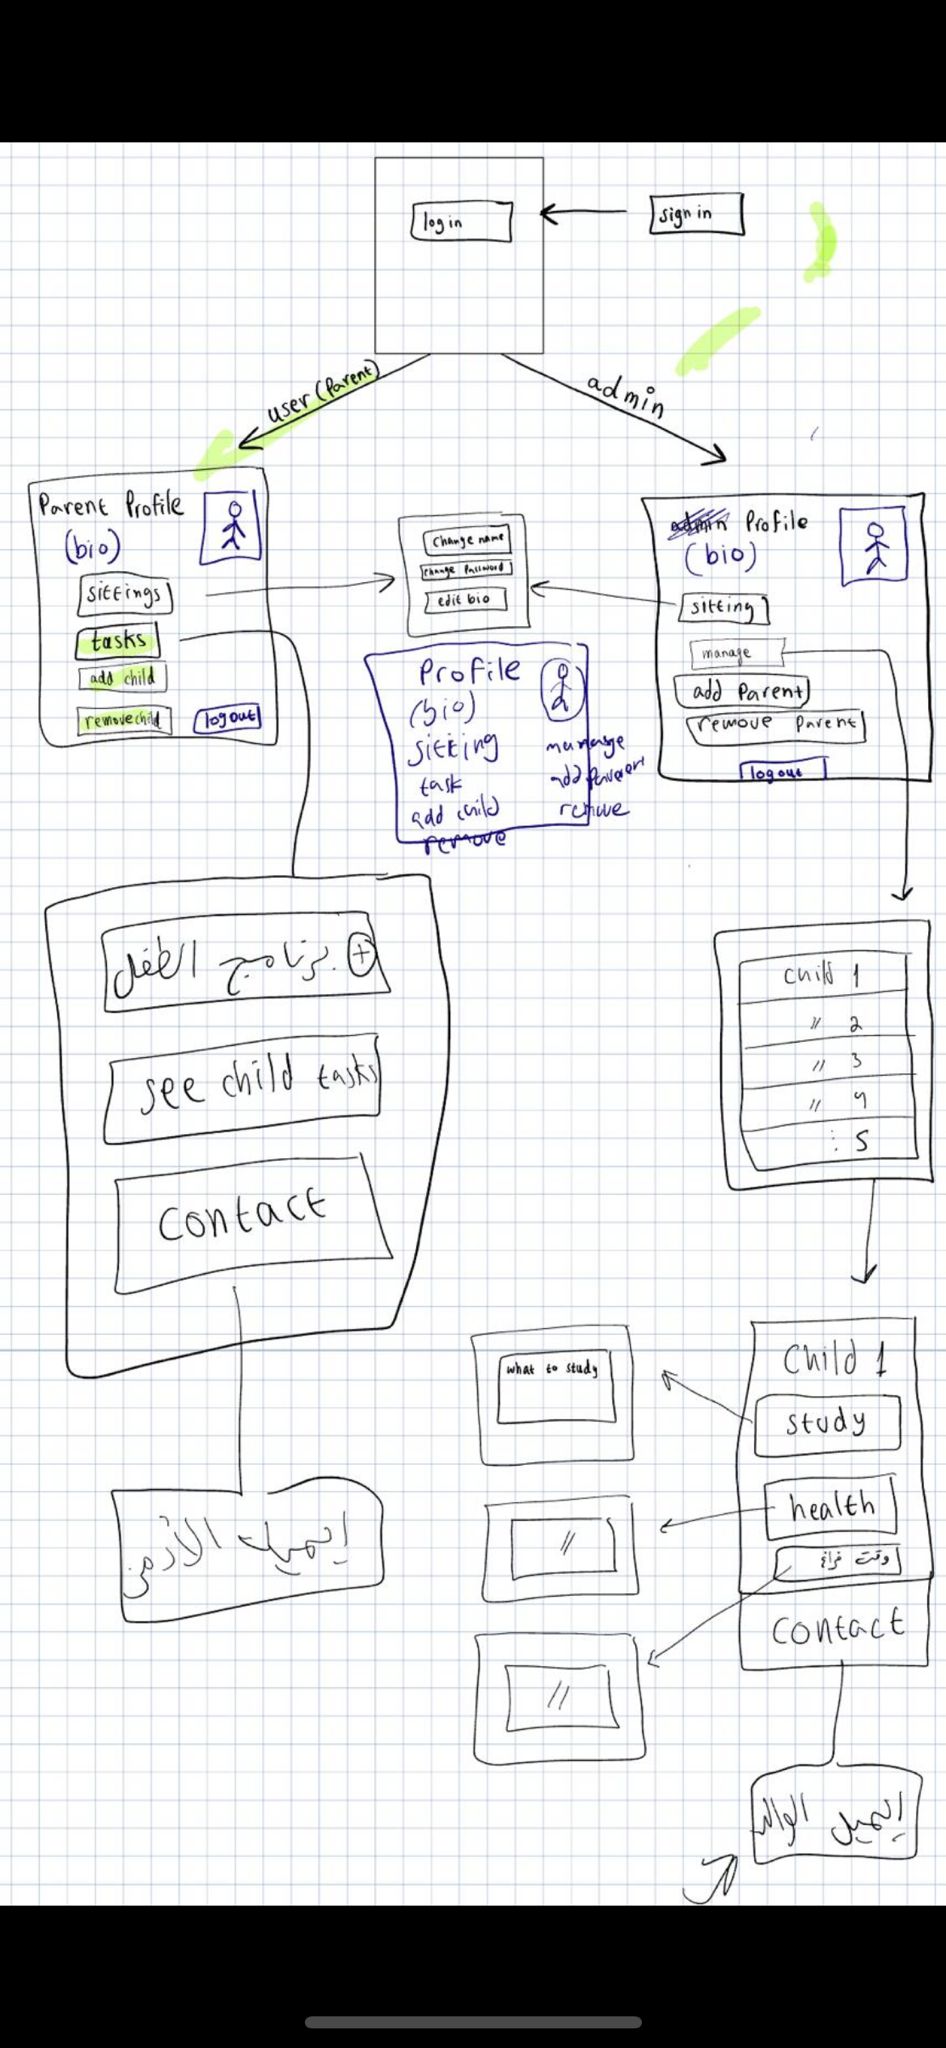 log in
sign in
user (Parent)
admin
Parent Profile
(bio)
sittings
tasks
add child
remove child
logout
change name
change Password
edit bio
Profile
(bio)
sitting
task
add child
remove
manage
add Parent
remove
admin Profile
(bio)
sitting
manage
add Parent
remove Parent
logout
برنامج الطفل +
see child tasks
contact
child 1
〃 2
〃 3
〃 4
⋮ 5
child 1
study
health
وقت فراغ
contact
what to study
//
//
إيميل الأدمن
إيميل الوالد